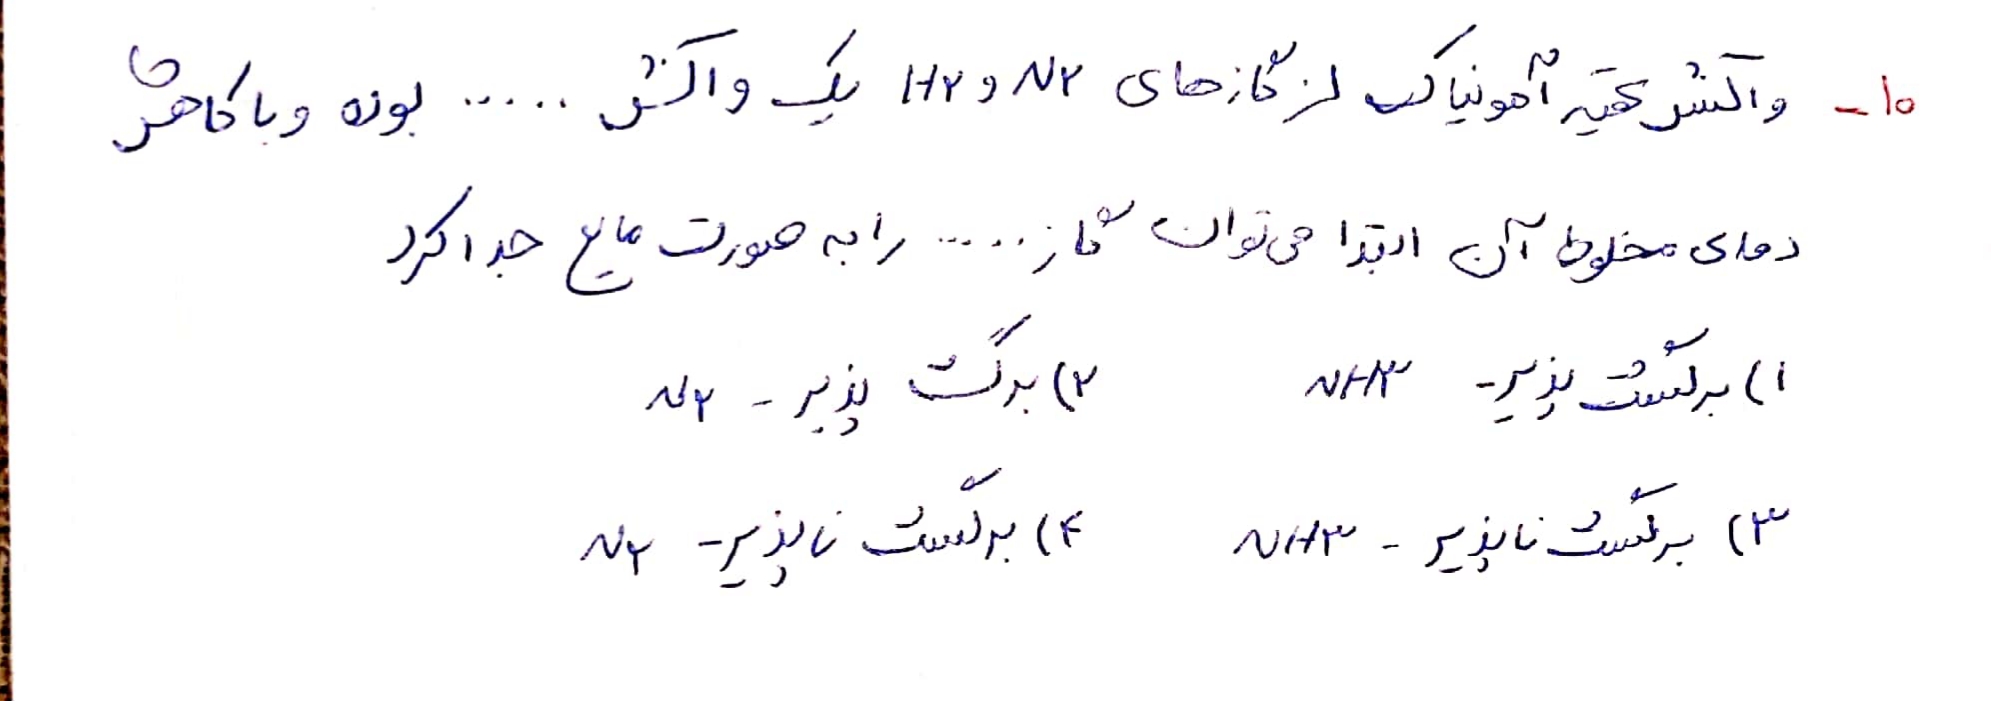 ۱۰- واکنش تهیه آمونیاک از گازهای N۲ و H۲ یک واکنش ..... بوده و با کاهش
دمای مخلوط آن ابتدا می‌توان گاز ..... را به صورت مایع جدا کرد
۱) برگشت پذیر - NH۳ ۲) برگشت پذیر - N۲
۳) برگشت ناپذیر - NH۳ ۴) برگشت ناپذیر - N۲